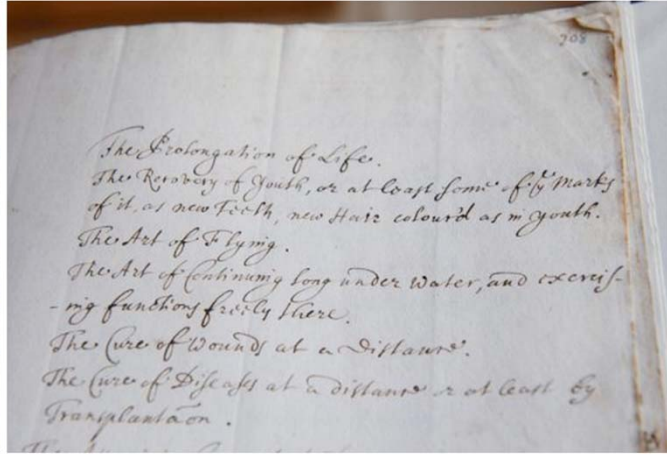 208
The Prolongation of Life.
The Recovery of Youth, or at least some of ye Marks
of it, as new Teeth, new Hair colour'd as in youth.
The Art of Flying.
The Art of Continuing long under water, and exercis-
-ing functions freely there.
The Cure of Wounds at a Distance.
The Cure of Diseases at a distance or at least by
Transplantaon.
The